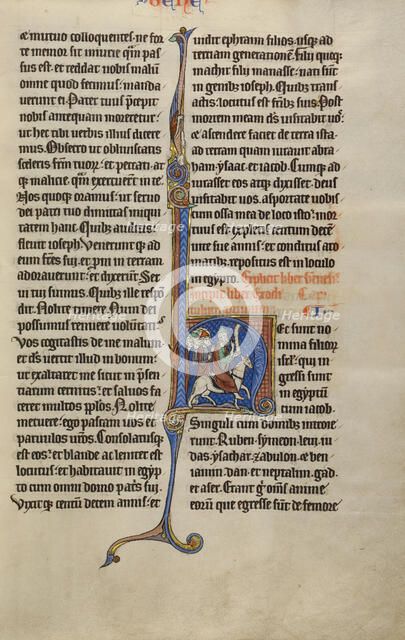 Gene
æ mutuo colloquentes. ne for
te memor sit iniurie quam pas
sus est. et reddat nobis malum
omne quod fecimus. manda
verunt ei. Pater tuus precepit
nobis antequam moreretur.
ut hec tibi verbis illius dicere
mus. Obsecro ut obliviscaris
sceleris fratrum tuorum. et peccati. at
que malicie quam exercuerunt in te.
Nos quoque oramus. ut servo
dei patri tuo dimittas iniqui
tatem hanc. Quibus auditis
flevit ioseph. Venerunt que ad
eum fratres sui. et proni in terram
adoraverunt. et dixerunt. Ser
vi tui sumus. Quibus ille respon
dit. Nolite timere. Num dei
possumus rennuere voluntatem.
Vos cogitastis de me malum.
et deus vertit illud in bonum.
ut exaltaret me sicut in presen
tiarum cernitis. et salvos fa
ceret multos populos. Nolite
metuere. ego pascam vos. et
parvulos vestros. Consolatusque
est eos. et blande ac leniter est
locutus. et habitavit in egyp
to cum omni domo patris sui.
Vixitque centum decem annis. et
vidit ephraim filios. usque ad
terciam generationem. Filii quoque
machir filii manasse. nati sunt
in genibus ioseph. Quibus trans
actis. locutus est fratribus suis. Post
mortem meam deus visitabit vos.
et ascendere faciet de terra ista
ad terram quam iuravit abra
ham. ysaac. et iacob. Cumque ad
iurasset eos atque dixisset. deus
visitabit vos. asportate vobiscum
ossa mea de loco isto. mor
tuus est expletis centum decem
annis. et conditus aro
matibus repositus est in loculo
in egypto. Explicit liber Genesis.
Incipit liber Exodi.
Hec sunt no
mina filiorum
israel. qui in
gressi sunt
in egyptum
cum iacob.
Singuli cum domibus introie
runt. Ruben. symeon. levi. iu
das. ysachar. zabulon. et ben
iamin. dan et neptalim. gad
et aser. Erant igitur omnes anime
eorum que egresse sunt de femore
heritage images